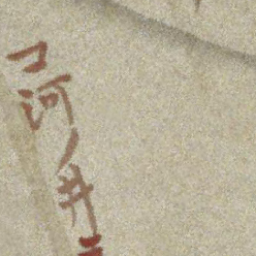 コ河ノ井